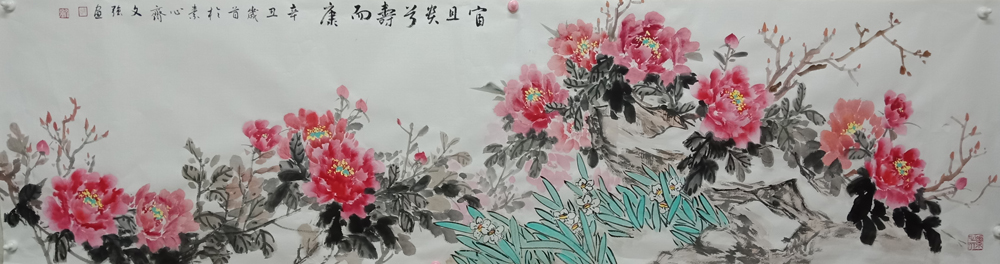 富且贵兮寿而康
辛丑岁首於素心斋文强画